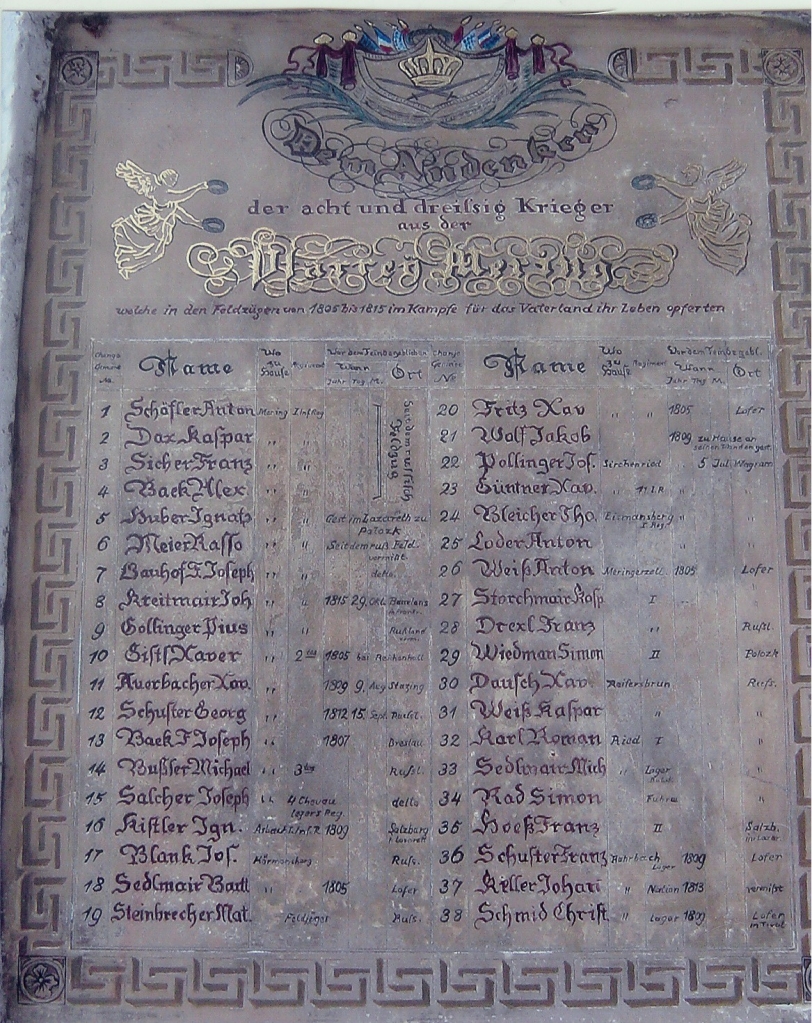 Dem Andenken
der acht und dreissig Krieger
aus der
Pfarrey Mering
welche in den Feldzügen von 1805 bis 1815 im Kampfe für das Vaterland ihr Leben opferten
Name Wo zu Hause Regiment Vor dem Feinde geblieben Wann Jahr Tag M. Ort
Name Wo zu Hause Regiment Vor dem Feinde gebl. Wann Jahr Tag M. Ort
1 Schöfler Anton Mering
2 Dax Kaspar " "
3 Sicher Franz " "
4 Baek Alex " "
Seit dem russisch Feldzug
5 Huber Ignatz " " Gest im Lazareth zu Polozk
6 Meier Rasso " " Seit dem Ruß. Feld. vermißt
7 Bauhof F. Joseph " " detto.
8 Kreitmair Joh " " 1815 29. Okt.
9 Gollinger Pius " " Rußland
10 Gistl Xaver " 2 1805 bei Reichenhall
11 Auerbacher Xav. " 1809 9. Aug
12 Schuster Georg " 1812 15. Sept. Russl.
13 Baek F Joseph " 1807 Breslau
14 Bußfer Michael " 3 Rußl.
15 Salcher Joseph " 4 Chevau legers Reg detto
16 Kistler Ign. 1. Inf. R 1809 Salzburg
17 Blank Jos. Hörmansberg Rufs.
18 Sedlmair Bartl " 1805 Lofer
19 Steinbrecher Mat. Feldjäger Rufs.
20 Fritz Xav " " 1805 Lofer
21 Wolf Jakob 1809 zu Hause an seinen Wunden gest.
22 Pollinger Jos. Kirchenried 5 Jul. Wagram
23 Güntner Xav. " "
24 Bleicher Tho. Eismansberg "
25 Loder Anton "
26 Weiß Anton Meringerzell 1805 Lofer
27 Storchmair Kosp I
28 Drexl Franz " Rußl.
29 Wiedman Simon II Polozk
30 Dausch Xav. Reifersbrun Rufs.
31 Weiß Kaspar " "
32 Karl Roman Ried I "
33 Sedlmair Mich " "
34 Rad Simon Fuhrw "
35 Hoeß Franz II Salzb. im Lazar
36 Schuster Franz Rohrbach 1809 Lofer
37 Keller Johan " Nation 1813 vermißt
38 Schmid Christ. " 1809 Lofer in Tirol